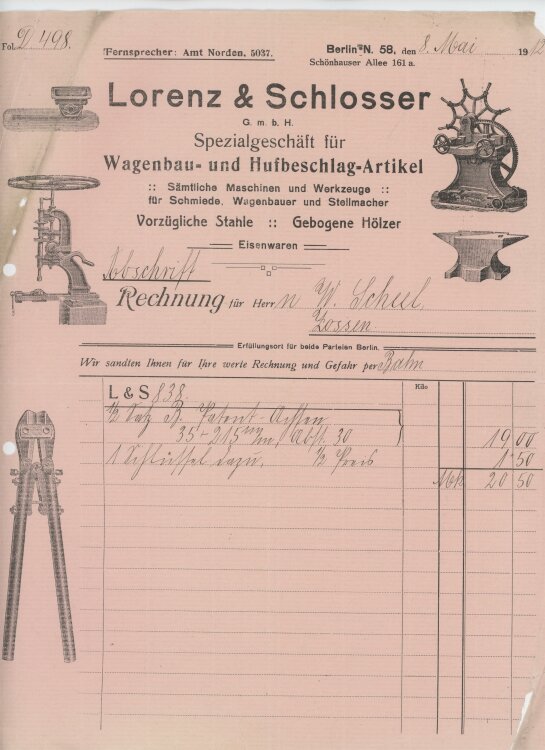 Fol. D 498.
Fernsprecher: Amt Norden, 5037.
Berlin N. 58, den 8. Mai 19
Schönhauser Allee 161 a.
Lorenz & Schlosser
G. m. b. H.
Spezialgeschäft für
Wagenbau- und Hufbeschlag-Artikel
:: Sämtliche Maschinen und Werkzeuge ::
für Schmiede, Wagenbauer und Stellmacher
Vorzügliche Stahle :: Gebogene Hölzer
Eisenwaren
Abschrift
Rechnung für Herrn W. Scheel,
Zossen
Erfüllungsort für beide Parteien Berlin.
Wir sandten Ihnen für Ihre werte Rechnung und Gefahr per Bahn
Kilo
L & S 838.
1/2 Satz B. Patent-Achsen
35-215 m/m, Abst. 30 19 00
1 Schlüssel dazu, 1/2 Preis 1 50
Mk 20 50